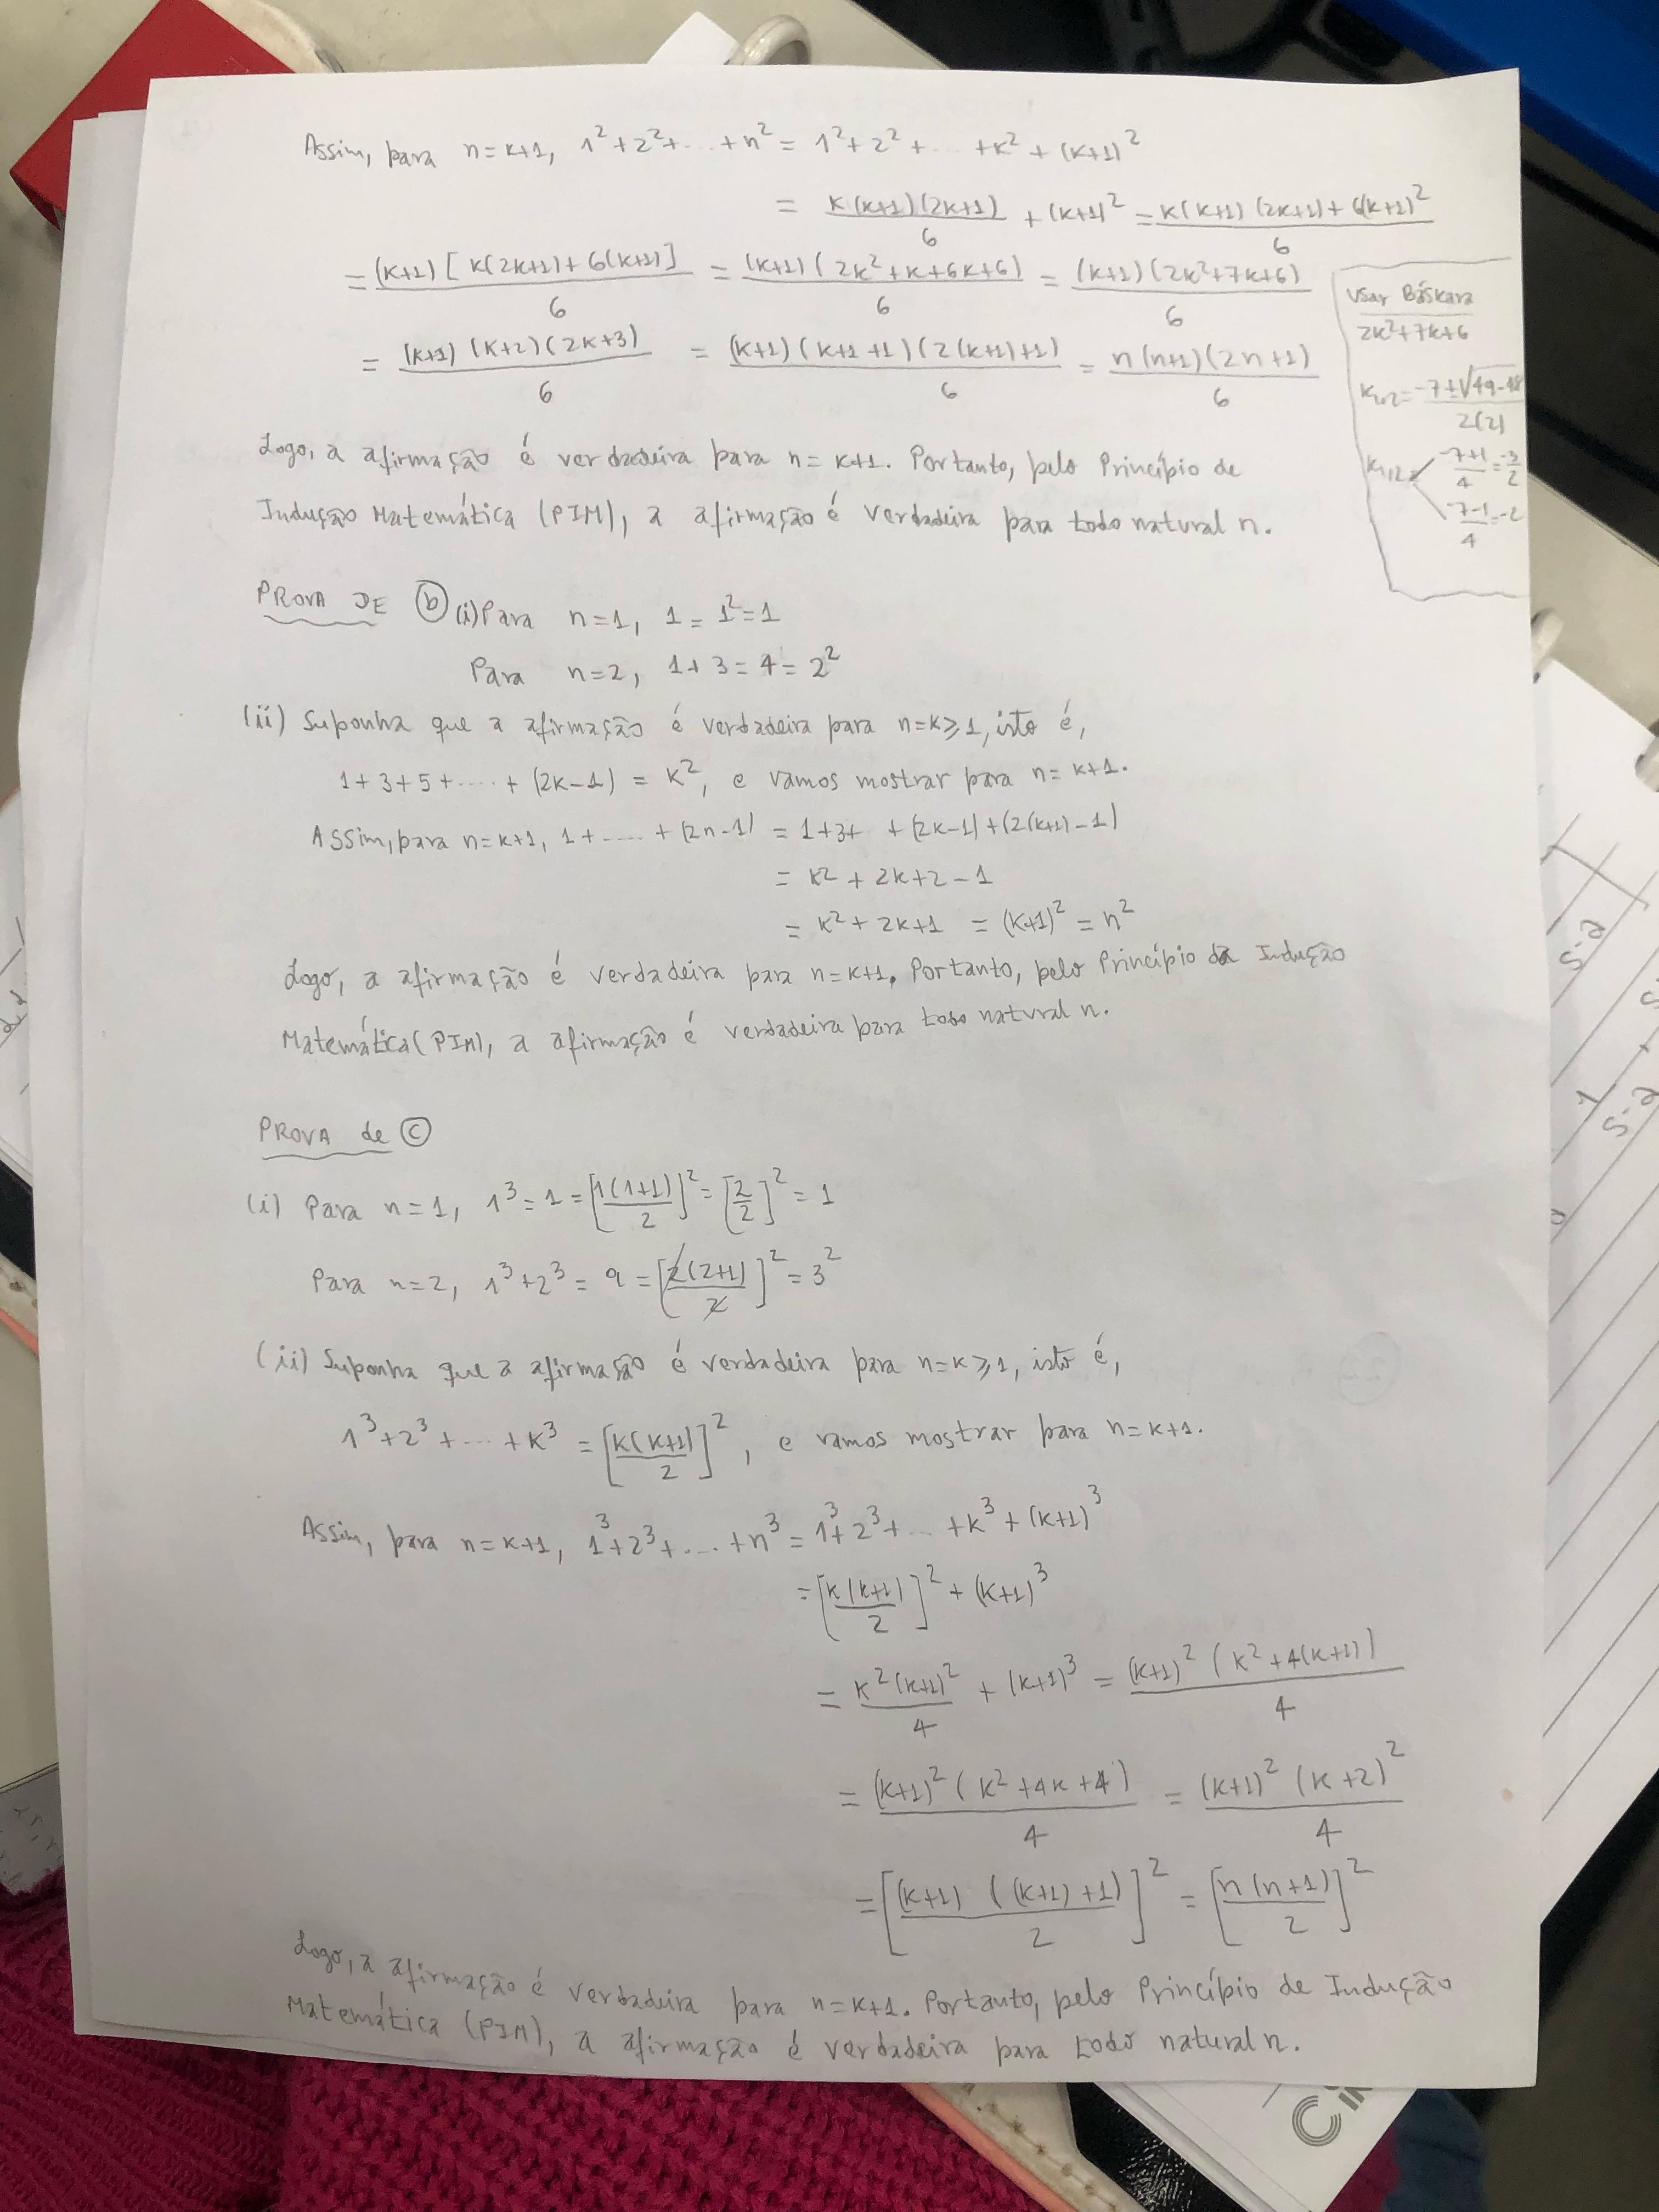 Assim, para n=k+1, 1²+2²+...+n² = 1²+2²+...+k²+(k+1)²
= k(k+1)(2k+1)/6 + (k+1)² = k(k+1)(2k+1)+6(k+1)²/6
= (k+1)[k(2k+1)+6(k+1)]/6 = (k+1)(2k²+k+6k+6)/6 = (k+1)(2k²+7k+6)/6
= (k+1)(k+2)(2k+3)/6 = (k+1)(k+1+1)(2(k+1)+1)/6 = n(n+1)(2n+1)/6
Usar Báskara
2k²+7k+6
k₁,₂= -7±√49-48/2(2)
k₁,₂= -7+1/4 = -3/2
-7-1/4 = -2
Logo, a afirmação é verdadeira para n=k+1. Portanto, pelo Princípio de
Indução Matemática (PIM), a afirmação é verdadeira para todo natural n.
PROVA DE (b) (i) Para n=1, 1=1²=1
Para n=2, 1+3=4=2²
(ii) Suponha que a afirmação é verdadeira para n=k≥1, isto é,
1+3+5+.....+(2k-1) = k², e vamos mostrar para n=k+1.
Assim, para n=k+1, 1+.....+(2n-1) = 1+3+ +(2k-1)+(2(k+1)-1)
= k²+2k+2-1
= k²+2k+1 = (k+1)² = n²
Logo, a afirmação é verdadeira para n=k+1. Portanto, pelo Princípio da Indução
Matemática (PIM), a afirmação é verdadeira para todo natural n.
PROVA de (c)
(i) Para n=1, 1³=1=[1(1+1)/2]²=[2/2]²=1
Para n=2, 1³+2³=9=[2(2+1)/2]²=3²
(ii) Suponha que a afirmação é verdadeira para n=k≥1, isto é,
1³+2³+...+k³ = [k(k+1)/2]², e vamos mostrar para n=k+1.
Assim, para n=k+1, 1³+2³+....+n³ = 1³+2³+...+k³+(k+1)³
= [k(k+1)/2]² + (k+1)³
= k²(k+1)²/4 + (k+1)³ = (k+1)²(k²+4(k+1))/4
= (k+1)²(k²+4k+4)/4 = (k+1)²(k+2)²/4
= [(k+1)((k+1)+1)/2]² = [n(n+1)/2]²
Logo, a afirmação é verdadeira para n=k+1. Portanto, pelo Princípio de Indução
Matemática (PIM), a afirmação é verdadeira para todo natural n.
S-2
S-2